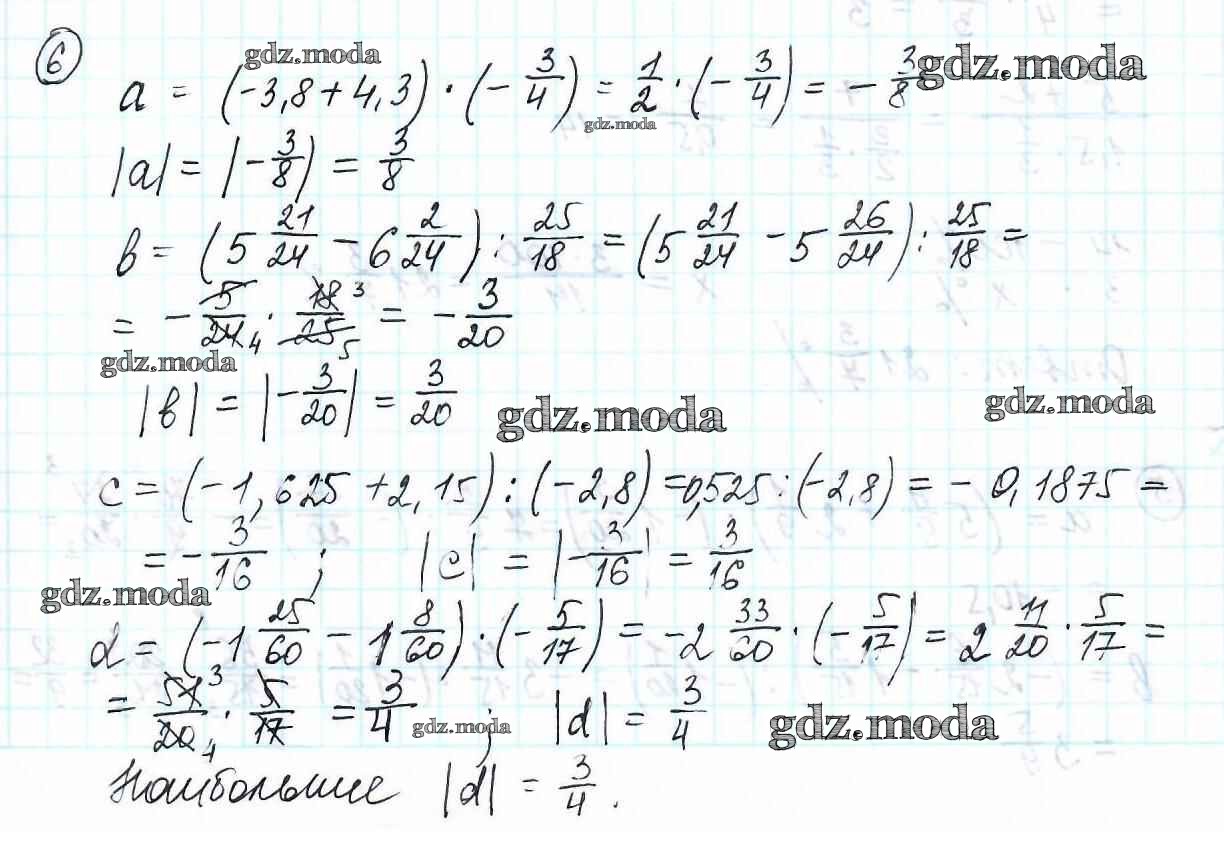 6
gdz.moda
a = (-3,8 + 4,3) · (- 3/4) = 1/2 · (- 3/4) = - 3/8 gdz.moda
gdz.moda
|a| = |- 3/8| = 3/8
b = (5 21/24 - 6 2/24) : 25/18 = (5 21/24 - 5 26/24) : 25/18 =
= - 5/24 4 · 18 3/25 5 = - 3/20
gdz.moda
|b| = |- 3/20| = 3/20
gdz.moda gdz.moda
c = (-1,625 + 2,15) : (-2,8) = 0,525 : (-2,8) = - 0,1875 =
= - 3/16 ; |c| = |- 3/16| = 3/16
gdz.moda
d = (-1 25/60 - 1 8/60) · (- 5/17) = -2 33/60 · (- 5/17) = 2 11/20 · 5/17 =
= 51 3/20 4 · 5/17 = 3/4 gdz.moda ; |d| = 3/4 gdz.moda
Наибольшие |d| = 3/4.